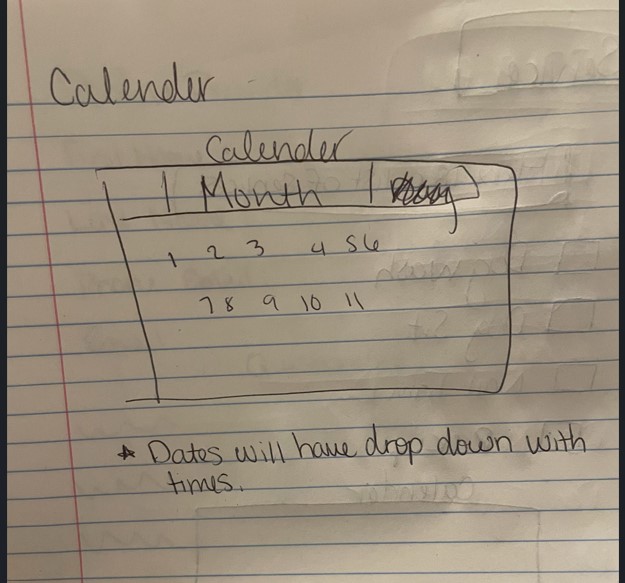 Calender
Calender
Month
1 2 3 4 5 6
7 8 9 10 11
* Dates will have drop down with
times.